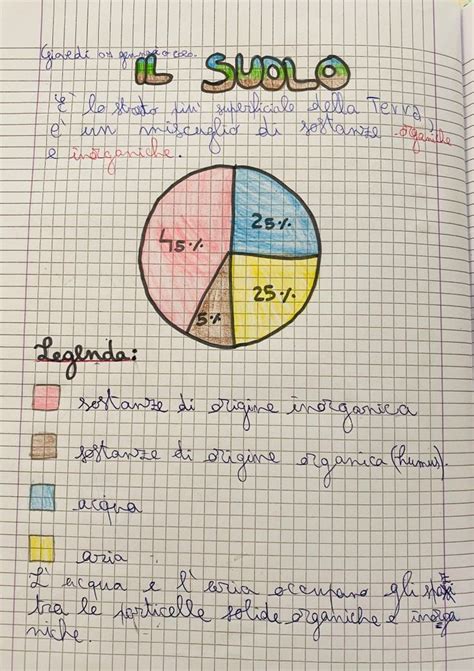 Giovedì gennaio
IL SUOLO
È lo strato più superficiale della Terra,
è un miscuglio di sostanze organiche
e inorganiche.
45%
25%
25%
5%
Legenda:
sostanze di origine inorganica
sostanze di origine organica (humus).
acqua
aria
L'acqua e l'aria occupano gli spazi
tra le particelle solide organiche e inorga
niche.